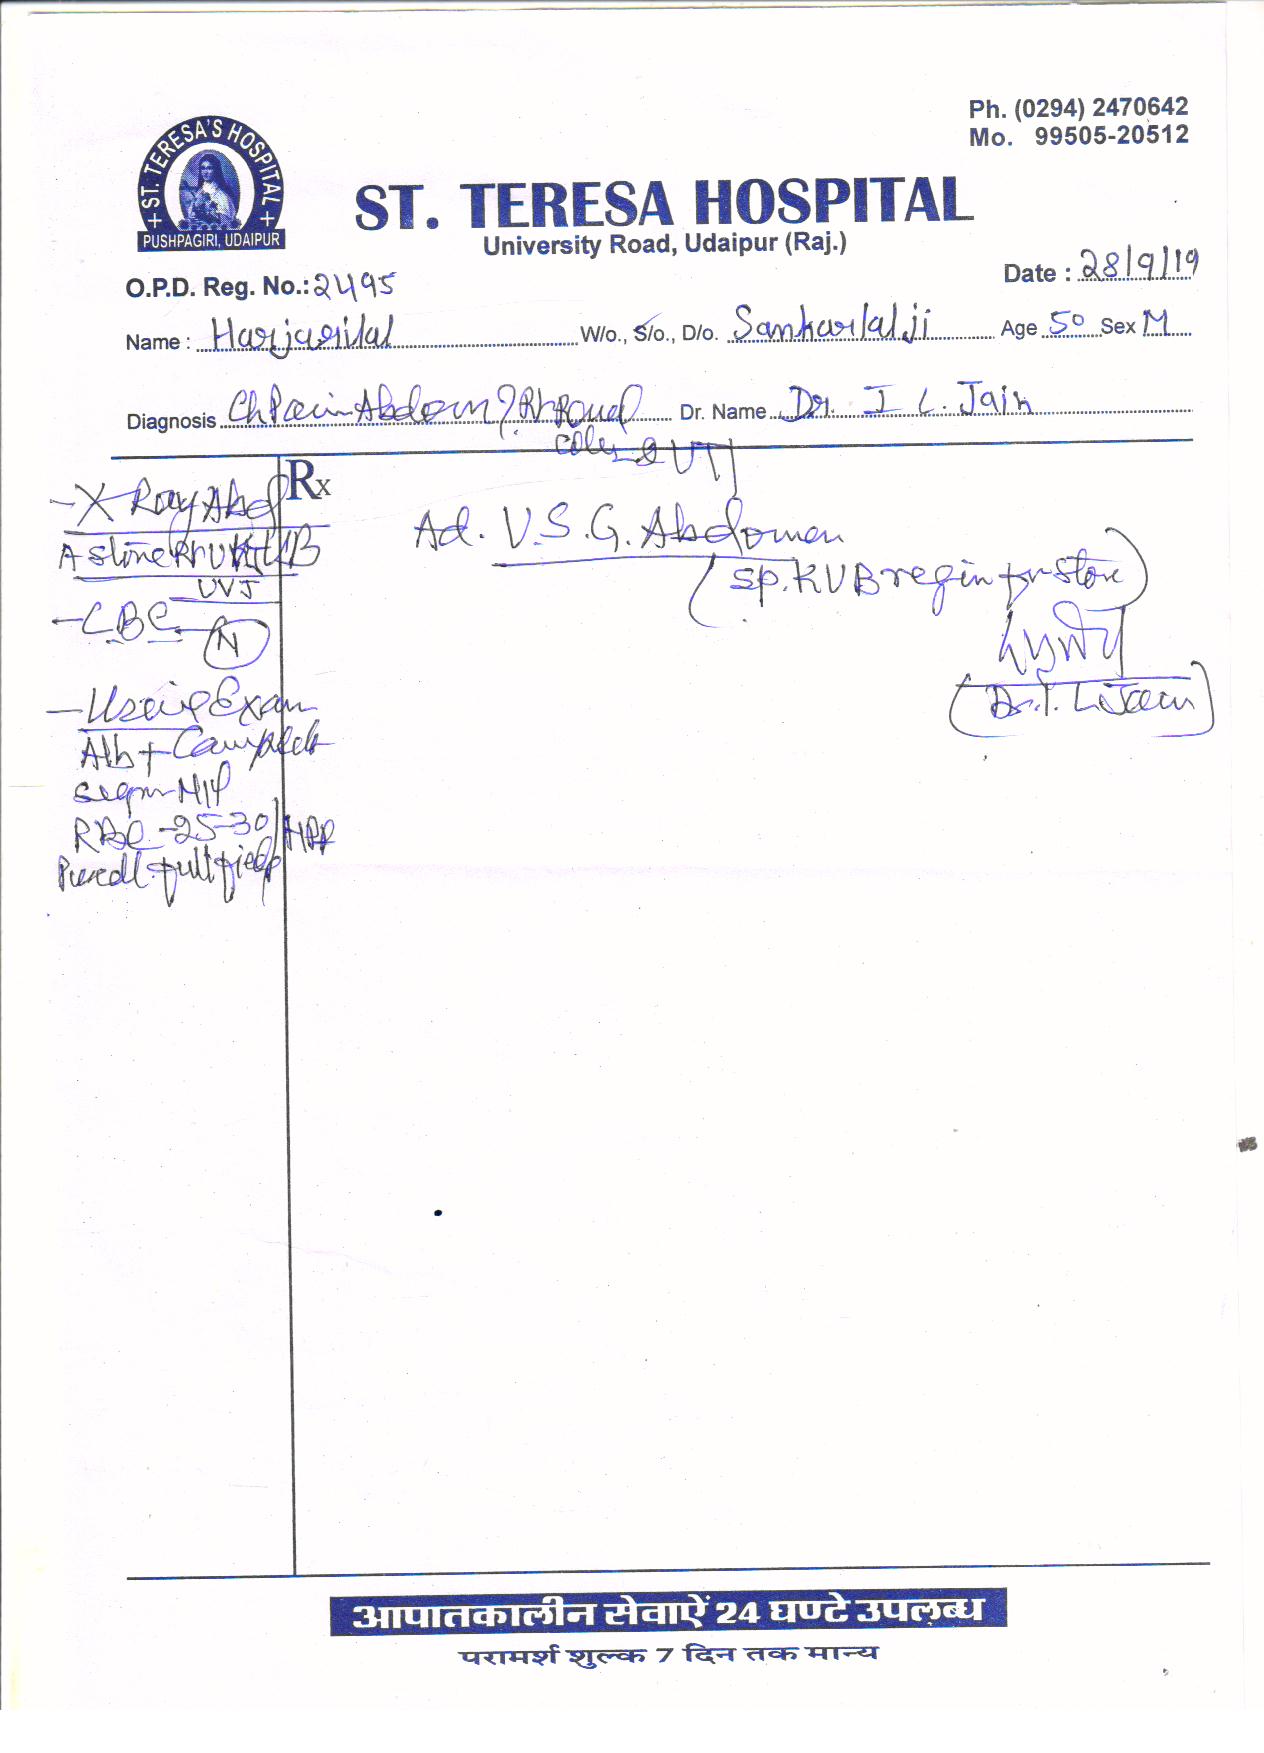 Ph. (0294) 2470642
Mo. 99505-20512
ST. TERESA'S HOSPITAL
PUSHPAGIRI, UDAIPUR
ST. TERESA HOSPITAL
University Road, Udaipur (Raj.)
O.P.D. Reg. No.: 2495
Date : 28/9/19
Name : Harjarilal W/o., S/o., D/o. Sankarlalji Age 50 Sex M
Diagnosis Ch Pain Abdomen ? Rt Renal Dr. Name Dr. I L. Jain
UTI
Rx
- X Ray Abd
A stone Rt
UVJ
- CBC
N
- Urine Exam
Alb +
RBC - 25-30/HPF
Pus cell - full field
Ad. U.S.G. Abdomen
(sp. KUB region for stone)
(Dr. I. L. Jain)
आपातकालीन सेवाऐं 24 घण्टे उपलब्ध
परामर्श शुल्क 7 दिन तक मान्य